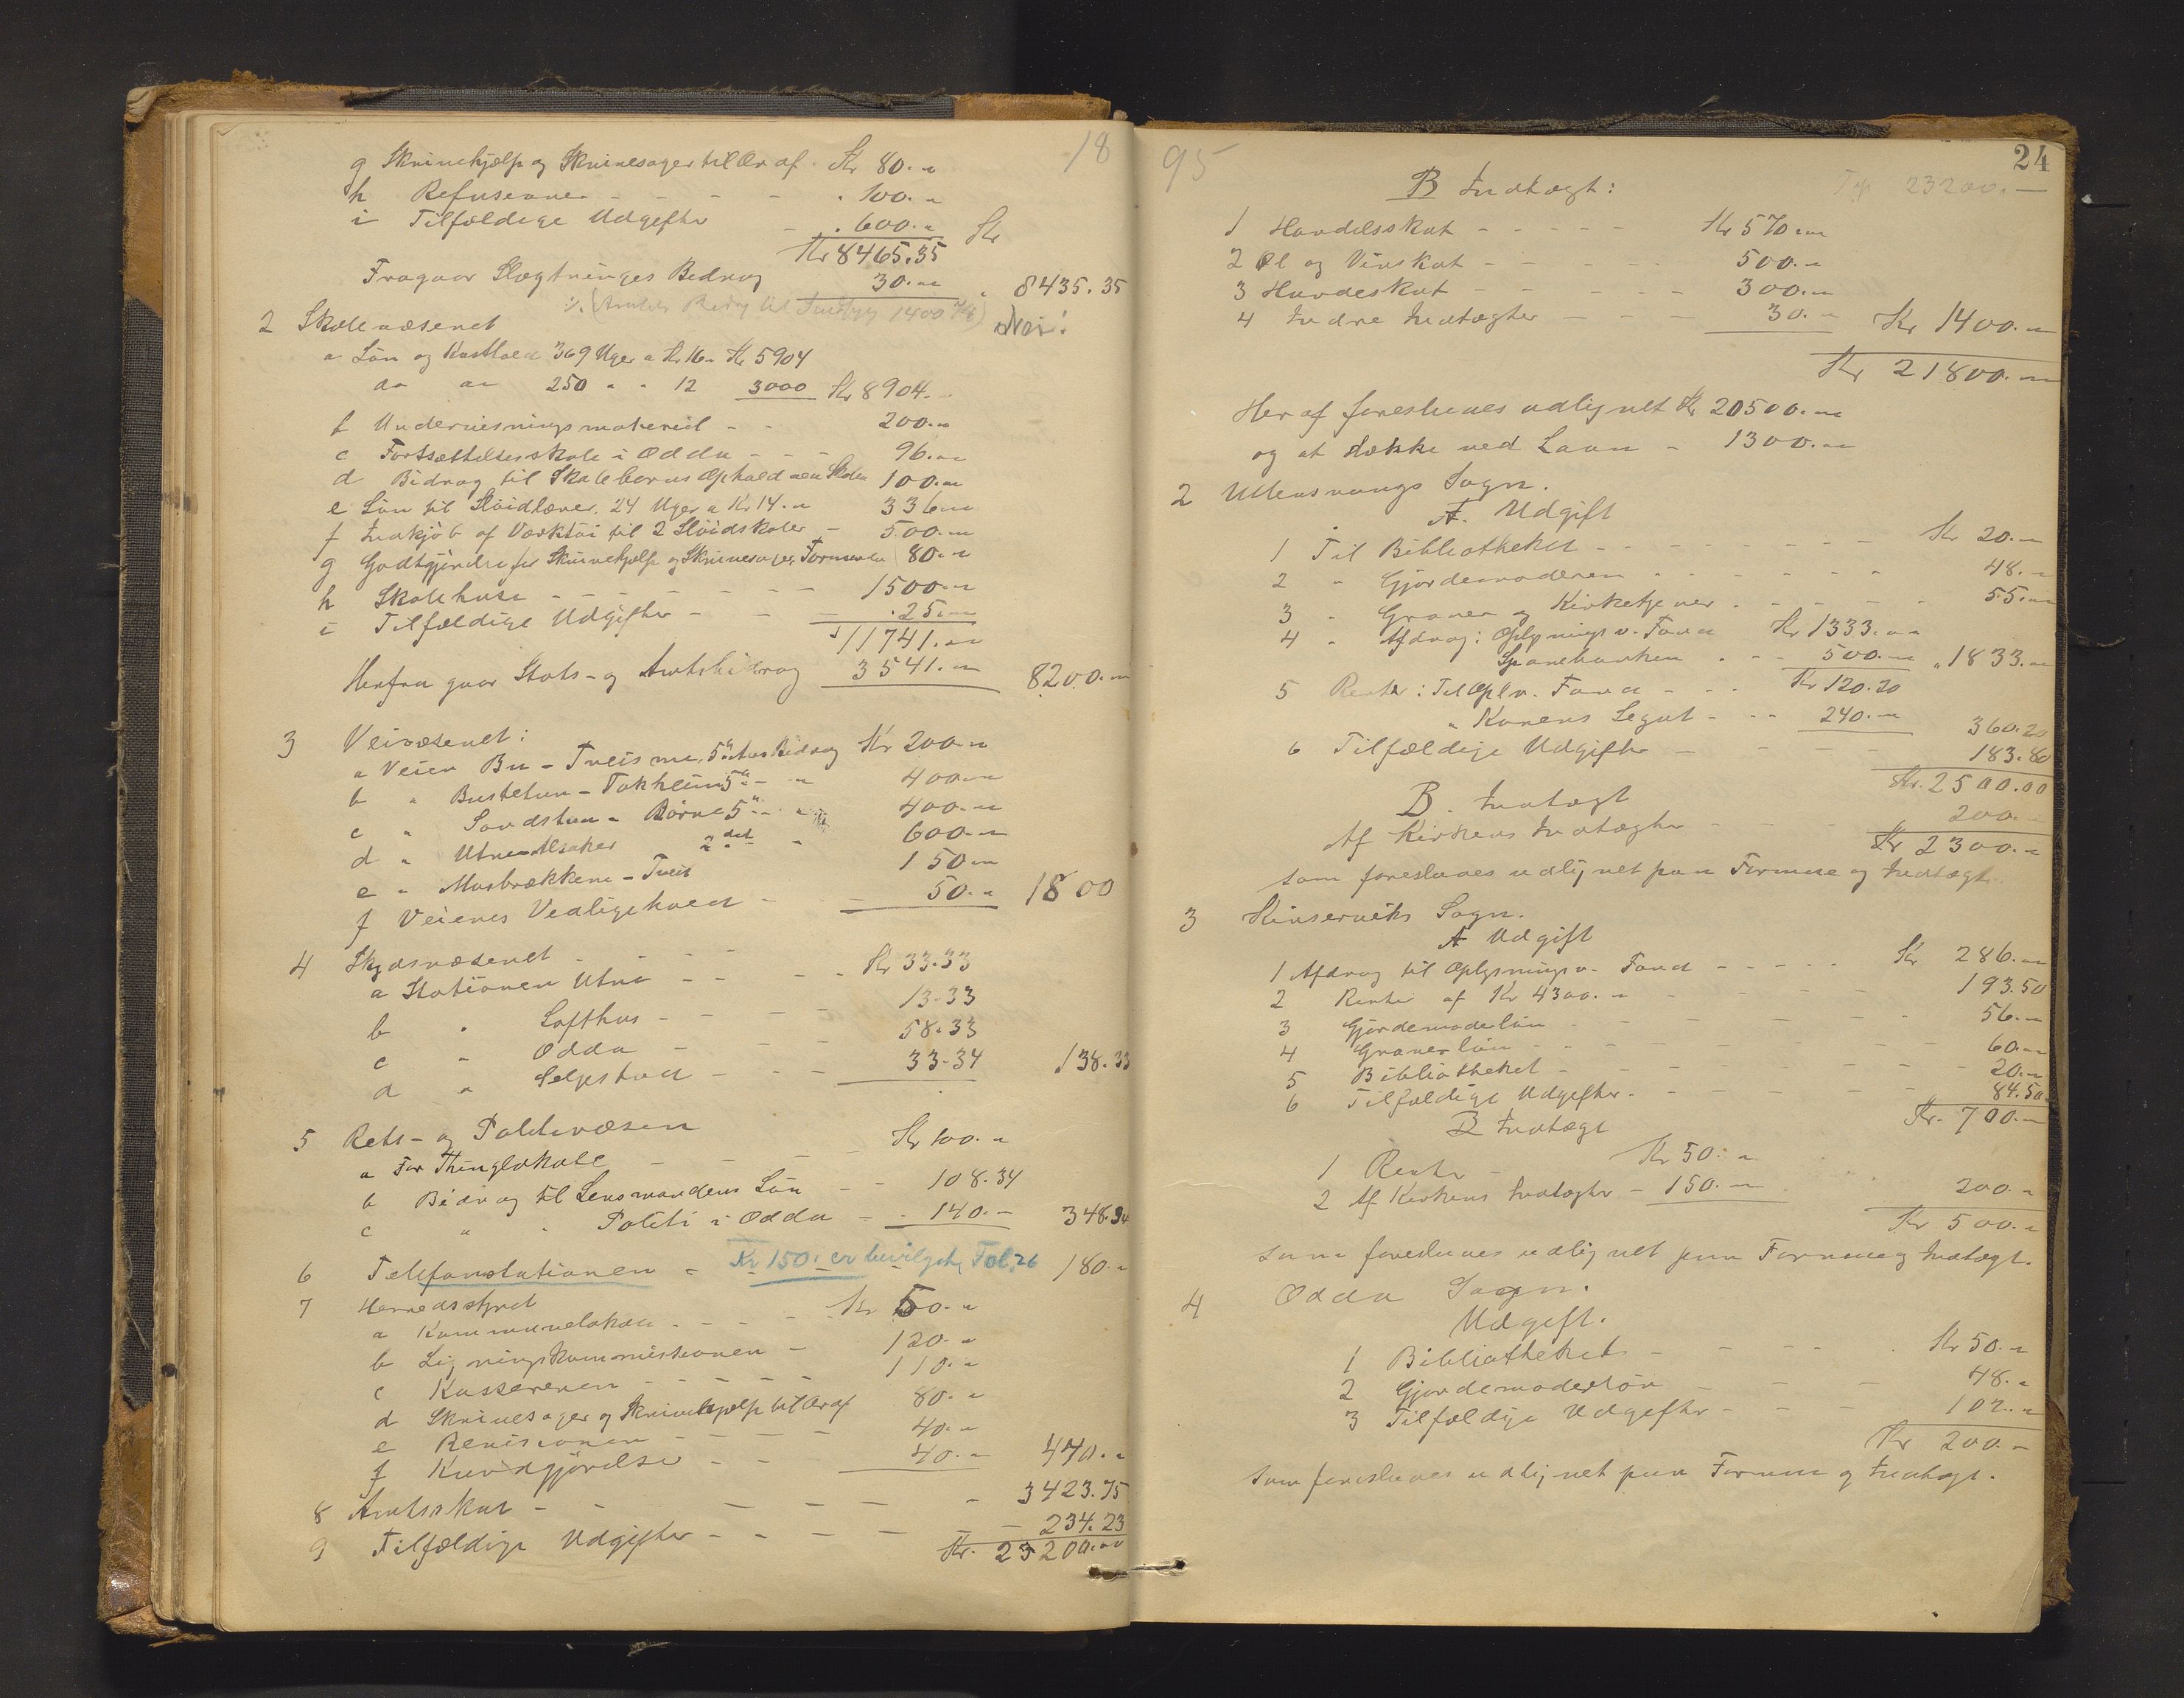 18
g Skrivehjælp og Skrivesager til Ordf. Kr 80.-
h Refusioner - - - - " 100.-
i Tilfældige Udgifter - " 600.- Kr
Kr 8465.35
Fragaar Slægtninges Bidrag 30.- " 8435.35
2 Skolevæsenet Nei!
a Løn og Kosthold 369 Uger a Kr 16.- Kr 5904
do do 250 " " 12 3000 Kr 8904.-
b Undervisningsmateriel - - 200.-
c Fortsættelsesskole i Odda - - - 96.-
d Bidrag til Skolebørns Ophold ved Skolen 100.-
e Løn til Sløidlærer. 24 Uger a Kr 14.- 336.-
f Indkjøb af Værktøi til 2 Sløidskoler - 500.-
g Godtgjørelse for Skrivehjælp og Skrivesager, Formanden 80.-
h Skolehuse - - - - - - 1500.-
i Tilfældige Udgifter - - - 25.-
11741.-
Herfra gaar Stats- og Amtsbidrag 3541.- 8200.-
3 Veivæsenet:
a Veien Bu - Tveisme, 5te Aars Bidrag Kr 200.-
b " Bustetun - Tokheim 5te - " 400.-
c " Sandstøen - Børve 5te - " 400.-
d " Utne - Alsaker 2det " 600.-
e " Mosbrækkene - Tveit 150.-
f Veienes Vedligehold - - 50.- 1800
4 Skydsvæsenet - - -
a Stationen Utne - - - - Kr 33.33
b " Lofthus - - - - 13.33
c " Odda - - - 58.33
d " Helgestad - - - 33.34 138.33
5 Rets- og Politivæsen
a For Thinglokale - - - - Kr 100.-
b Bidrag til Lensmandens Løn - - 108.34
c " " Politi i Odda - - 140.- 348.34
6 Telefonstationen - Kr 150.- er bevilget, Fol. 26 180.-
7 Herredsstyret
a Kommunelokale - - - - Kr 50.-
b Ligningskommissionen - 120.-
c Kassereren - - - - - 110.-
d Skrivesager og Skrivehjælp til Ordf 80.-
e Revisionen - - - - 40.-
f Kundgjørelse - - 40.- 440.-
8 Amtsskat - - - - - - 3423.75
9 Tilfældige Udgifter - - - - - - 234.23
Kr. 23200.00
95
24
B Indtægt: 23200.-
1 Handelsskat - - - - - Kr 570.-
2 Øl og Vinskat - - - - - 500.-
3 Hundeskat - - - - - 300.-
4 Andre Indtægter - - - 30.- Kr 1400.-
Kr 21800.-
Her af foreslaaes udlignet Kr 20500.-
og at dække ved Laan - 1300.-
2 Ullensvangs Sogn.
A. Udgift
1 Til Bibliotheket - - - - - - - - Kr 20.-
2 " Gjordemoderen - - - - - - 48.-
3 " Graver og Kirketjener - - - - - 55.-
4 " Afdrag: Oplysningsv. Fond Kr 1333.-
Sparebanken - - - 500.- " 1833.-
5 Renter: Til Oplv. Fond - - - Kr 120.20
" Konens Legat - - - 240.- 360.20
6 Tilfældige Udgifter - - - - - 183.80
Kr. 2500.00
B. Indtægt
Af Kirkens Indtægter - - - 200.-
Kr 2300.-
som foreslaaes udlignet paa Formue og Indtægt.
3 Kinserviks Sogn.
A Udgift
1 Afdrag til Oplysningsv. Fond - - - - - Kr 286.-
2 Renter af Kr 4300.- - - - - - 193.50
3 Gjordemoderløn - - - - - - - 56.-
4 Graverløn - - - - - - - - 60.-
5 Bibliotheket - - - - - - - - 20.-
6 Tilfældige Udgifter. - - - - - - 84.50
Kr. 700.-
B Indtægt
1 Renter - Kr 50.-
2 Af Kirkens Indtægter - 150.- 200.-
Kr 500.-
som foreslaaes udlignet paa Formue og Indtægt.
4 Odda Sogn.
Udgift.
1 Bibliotheket - - - - - Kr 50.-
2 Gjordemoderløn - - - 48.-
3 Tilfældige Udgifter - - - 102.-
Kr 200.-
som foreslaaes udlignet paa Formue og Indtægt.